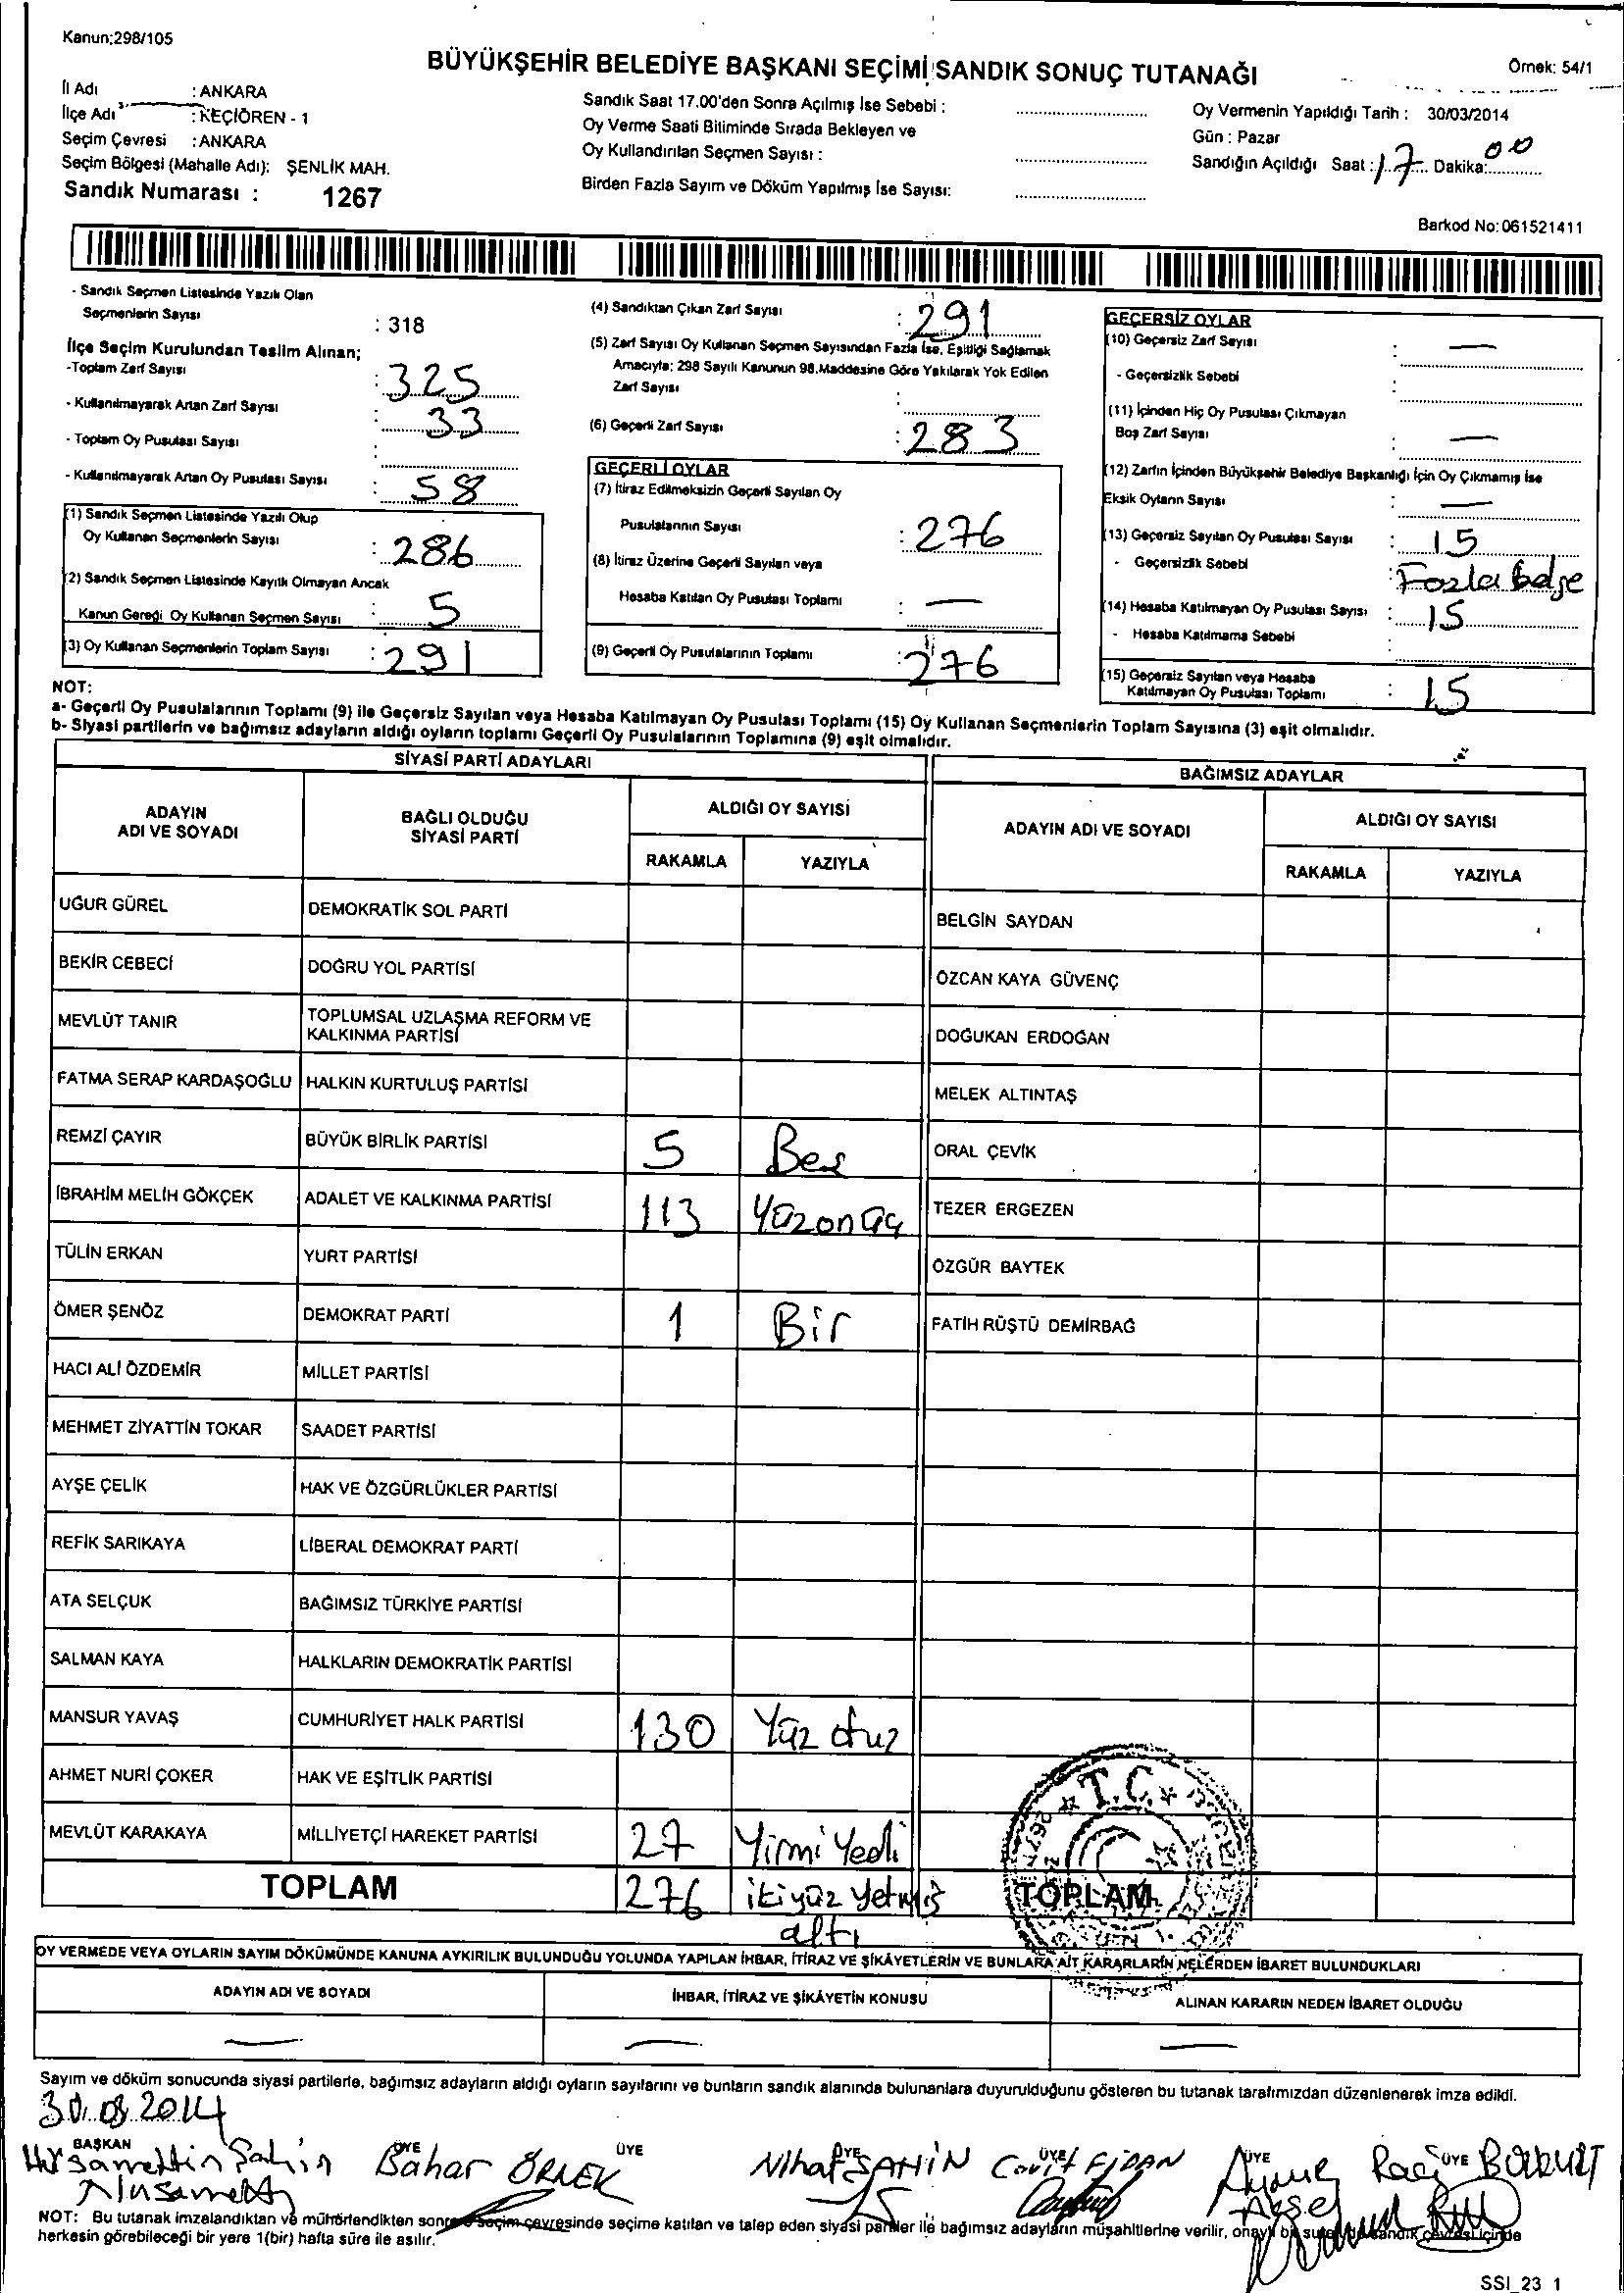 Kanun;298/105
BÜYÜKŞEHİR BELEDİYE BAŞKANI SEÇİMİ SANDIK SONUÇ TUTANAĞI
Örnek: 54/1
İl Adı : ANKARA
İlçe Adı : KEÇİÖREN - 1
Seçim Çevresi : ANKARA
Seçim Bölgesi (Mahalle Adı): ŞENLİK MAH.
Sandık Numarası : 1267
Sandık Saat 17.00'den Sonra Açılmış İse Sebebi :
Oy Verme Saati Bitiminde Sırada Bekleyen ve
Oy Kullandırılan Seçmen Sayısı :
Birden Fazla Sayım ve Döküm Yapılmış İse Sayısı:
Oy Vermenin Yapıldığı Tarih : 30/03/2014
Gün : Pazar
Sandığın Açıldığı Saat : 17 Dakika: 00
Barkod No:061521411
- Sandık Seçmen Listesinde Yazılı Olan
Seçmenlerin Sayısı : 318
İlçe Seçim Kurulundan Teslim Alınan;
-Toplam Zarf Sayısı : 325
- Kullanılmayarak Artan Zarf Sayısı : 33
- Toplam Oy Pusulası Sayısı :
- Kullanılmayarak Artan Oy Pusulası Sayısı : 58
(1) Sandık Seçmen Listesinde Yazılı Olup
Oy Kullanan Seçmenlerin Sayısı : 286
(2) Sandık Seçmen Listesinde Kayıtlı Olmayan Ancak
Kanun Gereği Oy Kullanan Seçmen Sayısı : 5
(3) Oy Kullanan Seçmenlerin Toplam Sayısı : 291
(4) Sandıktan Çıkan Zarf Sayısı : 291
(5) Zarf Sayısı Oy Kullanan Seçmen Sayısından Fazla İse, Eşitliği Sağlamak
Amacıyla; 298 Sayılı Kanunun 98.Maddesine Göre Yakılarak Yok Edilen
Zarf Sayısı :
(6) Geçerli Zarf Sayısı : 283
GEÇERLİ OYLAR
(7) İtiraz Edilmeksizin Geçerli Sayılan Oy
Pusulalarının Sayısı : 276
(8) İtiraz Üzerine Geçerli Sayılan veya
Hesaba Katılan Oy Pusulası Toplamı : —
(9) Geçerli Oy Pusulalarının Toplamı : 276
GEÇERSİZ OYLAR
(10) Geçersiz Zarf Sayısı : —
- Geçersizlik Sebebi :
(11) İçinden Hiç Oy Pusulası Çıkmayan
Boş Zarf Sayısı : —
(12) Zarfın İçinden Büyükşehir Belediye Başkanlığı İçin Oy Çıkmamış İse
Eksik Oyların Sayısı : —
(13) Geçersiz Sayılan Oy Pusulası Sayısı : 15
- Geçersizlik Sebebi : Fazla belge
(14) Hesaba Katılmayan Oy Pusulası Sayısı : 15
- Hesaba Katılmama Sebebi :
(15) Geçersiz Sayılan veya Hesaba
Katılmayan Oy Pusulası Toplamı : 15
NOT:
a- Geçerli Oy Pusulalarının Toplamı (9) ile Geçersiz Sayılan veya Hesaba Katılmayan Oy Pusulası Toplamı (15) Oy Kullanan Seçmenlerin Toplam Sayısına (3) eşit olmalıdır.
b- Siyasi partilerin ve bağımsız adayların aldığı oyların toplamı Geçerli Oy Pusulalarının Toplamına (9) eşit olmalıdır.
SİYASİ PARTİ ADAYLARI BAĞIMSIZ ADAYLAR
ADAYIN ADI VE SOYADI BAĞLI OLDUĞU SİYASİ PARTİ ALDIĞI OY SAYISI ADAYIN ADI VE SOYADI ALDIĞI OY SAYISI
RAKAMLA YAZIYLA RAKAMLA YAZIYLA
UĞUR GÜREL DEMOKRATİK SOL PARTİ BELGİN SAYDAN
BEKİR CEBECİ DOĞRU YOL PARTİSİ ÖZCAN KAYA GÜVENÇ
MEVLÜT TANIR TOPLUMSAL UZLAŞMA REFORM VE KALKINMA PARTİSİ DOĞUKAN ERDOĞAN
FATMA SERAP KARDAŞOĞLU HALKIN KURTULUŞ PARTİSİ MELEK ALTINTAŞ
REMZİ ÇAYIR BÜYÜK BİRLİK PARTİSİ 5 Beş ORAL ÇEVİK
İBRAHİM MELİH GÖKÇEK ADALET VE KALKINMA PARTİSİ 113 Yüzonüç TEZER ERGEZEN
TÜLİN ERKAN YURT PARTİSİ ÖZGÜR BAYTEK
ÖMER ŞENÖZ DEMOKRAT PARTİ 1 Bir FATİH RÜŞTÜ DEMİRBAĞ
HACI ALİ ÖZDEMİR MİLLET PARTİSİ
MEHMET ZİYATTİN TOKAR SAADET PARTİSİ
AYŞE ÇELİK HAK VE ÖZGÜRLÜKLER PARTİSİ
REFİK SARIKAYA LİBERAL DEMOKRAT PARTİ
ATA SELÇUK BAĞIMSIZ TÜRKİYE PARTİSİ
SALMAN KAYA HALKLARIN DEMOKRATİK PARTİSİ
MANSUR YAVAŞ CUMHURİYET HALK PARTİSİ 130 Yüz otuz
AHMET NURİ ÇOKER HAK VE EŞİTLİK PARTİSİ
MEVLÜT KARAKAYA MİLLİYETÇİ HAREKET PARTİSİ 27 Yirmi Yedi
T.C.
TOPLAM 276 ikiyüz yetmiş altı TOPLAM
OY VERMEDE VEYA OYLARIN SAYIM DÖKÜMÜNDE KANUNA AYKIRILIK BULUNDUĞU YOLUNDA YAPILAN İHBAR, İTİRAZ VE ŞİKÂYETLERİN VE BUNLARA AİT KARARLARIN NELERDEN İBARET BULUNDUKLARI
ADAYIN ADI VE SOYADI İHBAR, İTİRAZ VE ŞİKÂYETİN KONUSU ALINAN KARARIN NEDEN İBARET OLDUĞU
— — —
Sayım ve döküm sonucunda siyasi partilerle, bağımsız adayların aldığı oyların sayılarını ve bunların sandık alanında bulunanlara duyurulduğunu gösteren bu tutanak tarafımızdan düzenlenerek imza edildi.
30.03.2014
BAŞKAN ÜYE ÜYE ÜYE ÜYE ÜYE ÜYE
Hüsamettin Şahin Bahar ÖRNEK Nihat ŞAHİN Cavit FİDAN
NOT: Bu tutanak imzalandıktan ve mühürlendikten sonra seçim çevresinde seçime katılan ve talep eden siyasi partiler ile bağımsız adayların müşahitlerine verilir, onaylı bir sureti de sandık çevresi içinde
herkesin görebileceği bir yere 1(bir) hafta süre ile asılır.
SSI_23 1